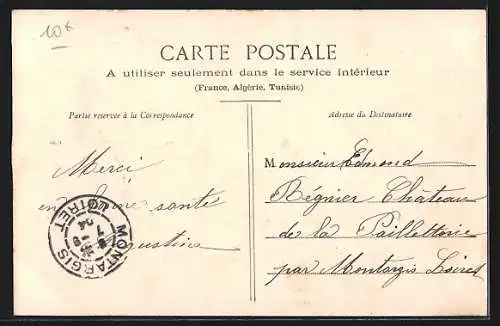 10€
CARTE POSTALE
A utiliser seulement dans le service intérieur
(France, Algérie, Tunisie)
Partie réservée à la Correspondance
Adresse du Destinataire
Merci
en bonne santé
Augustine
MONTARGIS
LOIRET
04
Monsieur Edmond
Régnier Château
de la Pailletterie
par Montargis Loiret